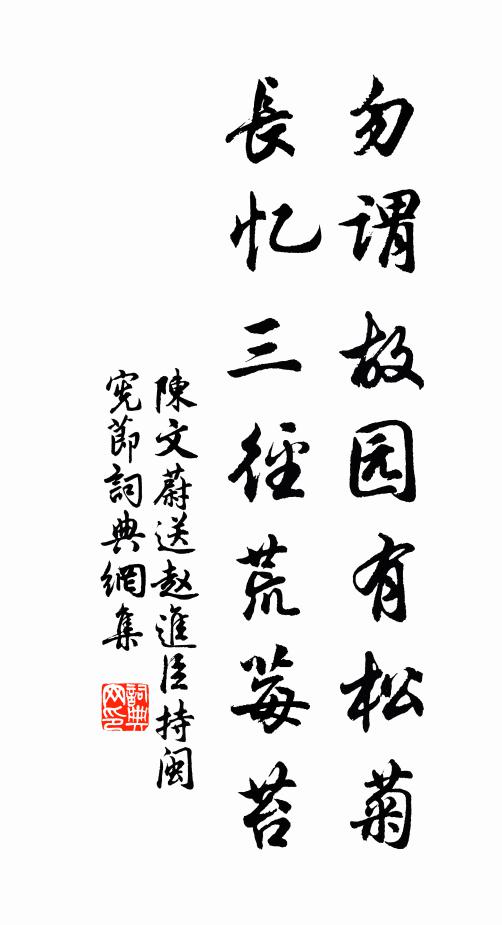 勿谓故园有松菊
長忆三徑荒莓苔
陳文蔚送赵進臣持闽
宪節詞典網集
詞典
网印